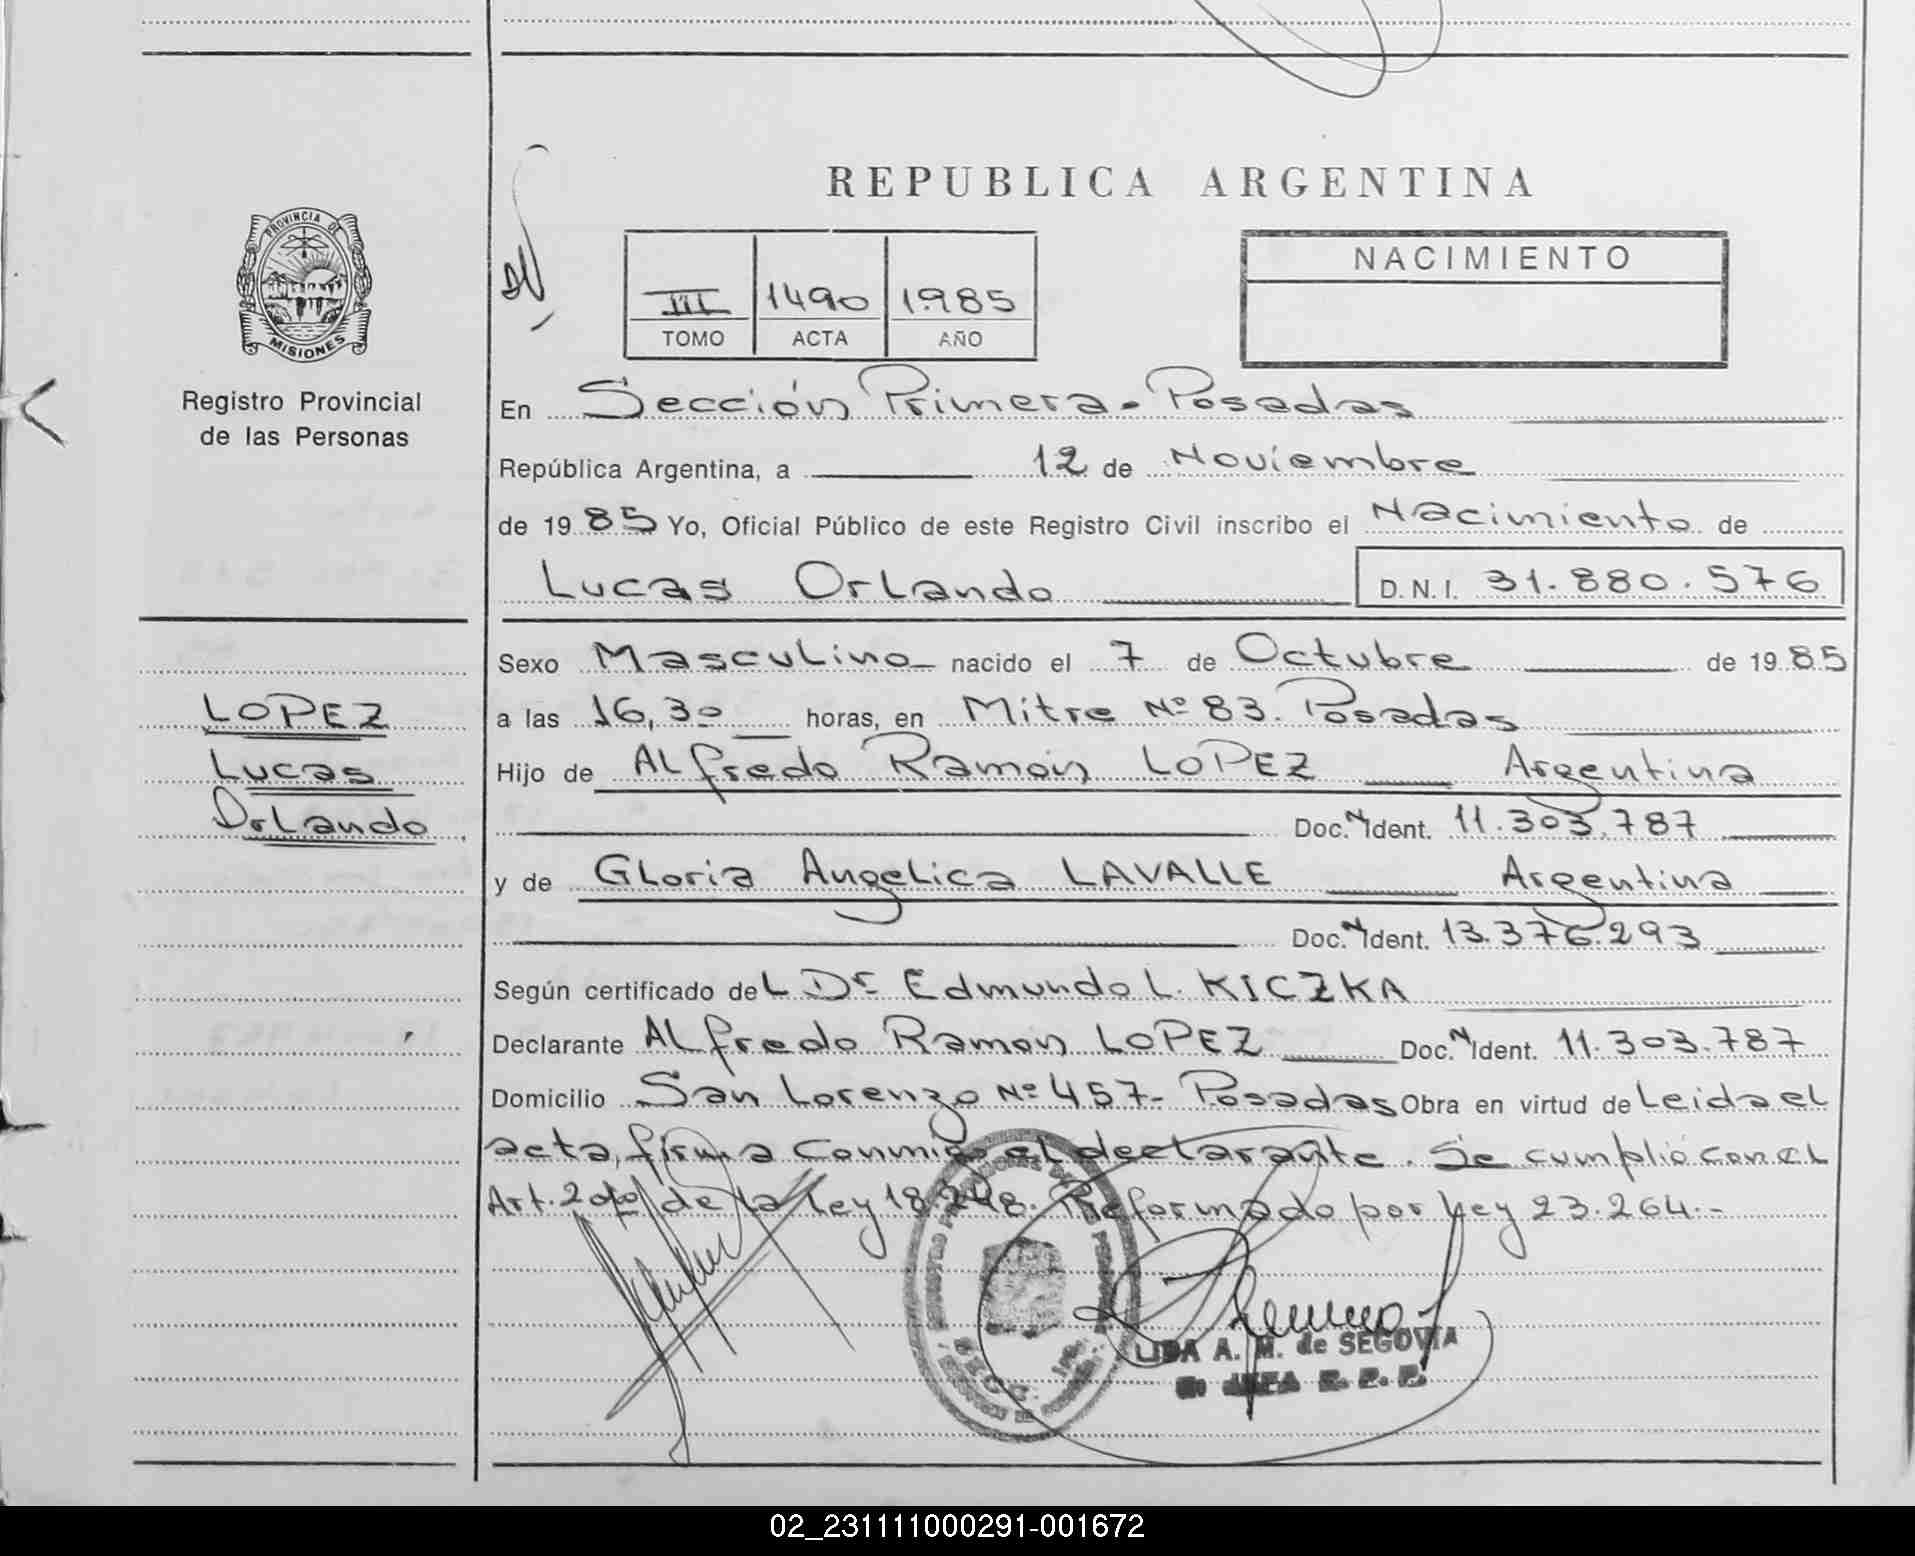 REPUBLICA ARGENTINA
PROVINCIA DE
MISIONES
Registro Provincial
de las Personas
III 1490 1985
TOMO ACTA AÑO
NACIMIENTO
En Sección Primera - Posadas
República Argentina, a 12 de Noviembre
de 1985 Yo, Oficial Público de este Registro Civil inscribo el Nacimiento de
Lucas Orlando D.N.I. 31.880.576
Sexo Masculino nacido el 7 de Octubre de 1985
LOPEZ
Lucas
Orlando
a las 16,30 horas, en Mitre Nº 83. Posadas
Hijo de Alfredo Ramón LOPEZ Argentina
Doc. N Ident. 11.303.787
y de Gloria Angelica LAVALLE Argentina
Doc. N Ident. 13.376.293
Según certificado del Dr Edmundo L. KICZKA
Declarante Alfredo Ramon LOPEZ Doc. N Ident. 11.303.787
Domicilio San Lorenzo Nº 457- Posadas Obra en virtud de Leida el
acta, firma conmigo el declarante. Se cumplió con el
Art. 2do de la Ley 18.248. Reformado por Ley 23.264.-
LIDA A. M. de SEGOVIA
02_231111000291-001672